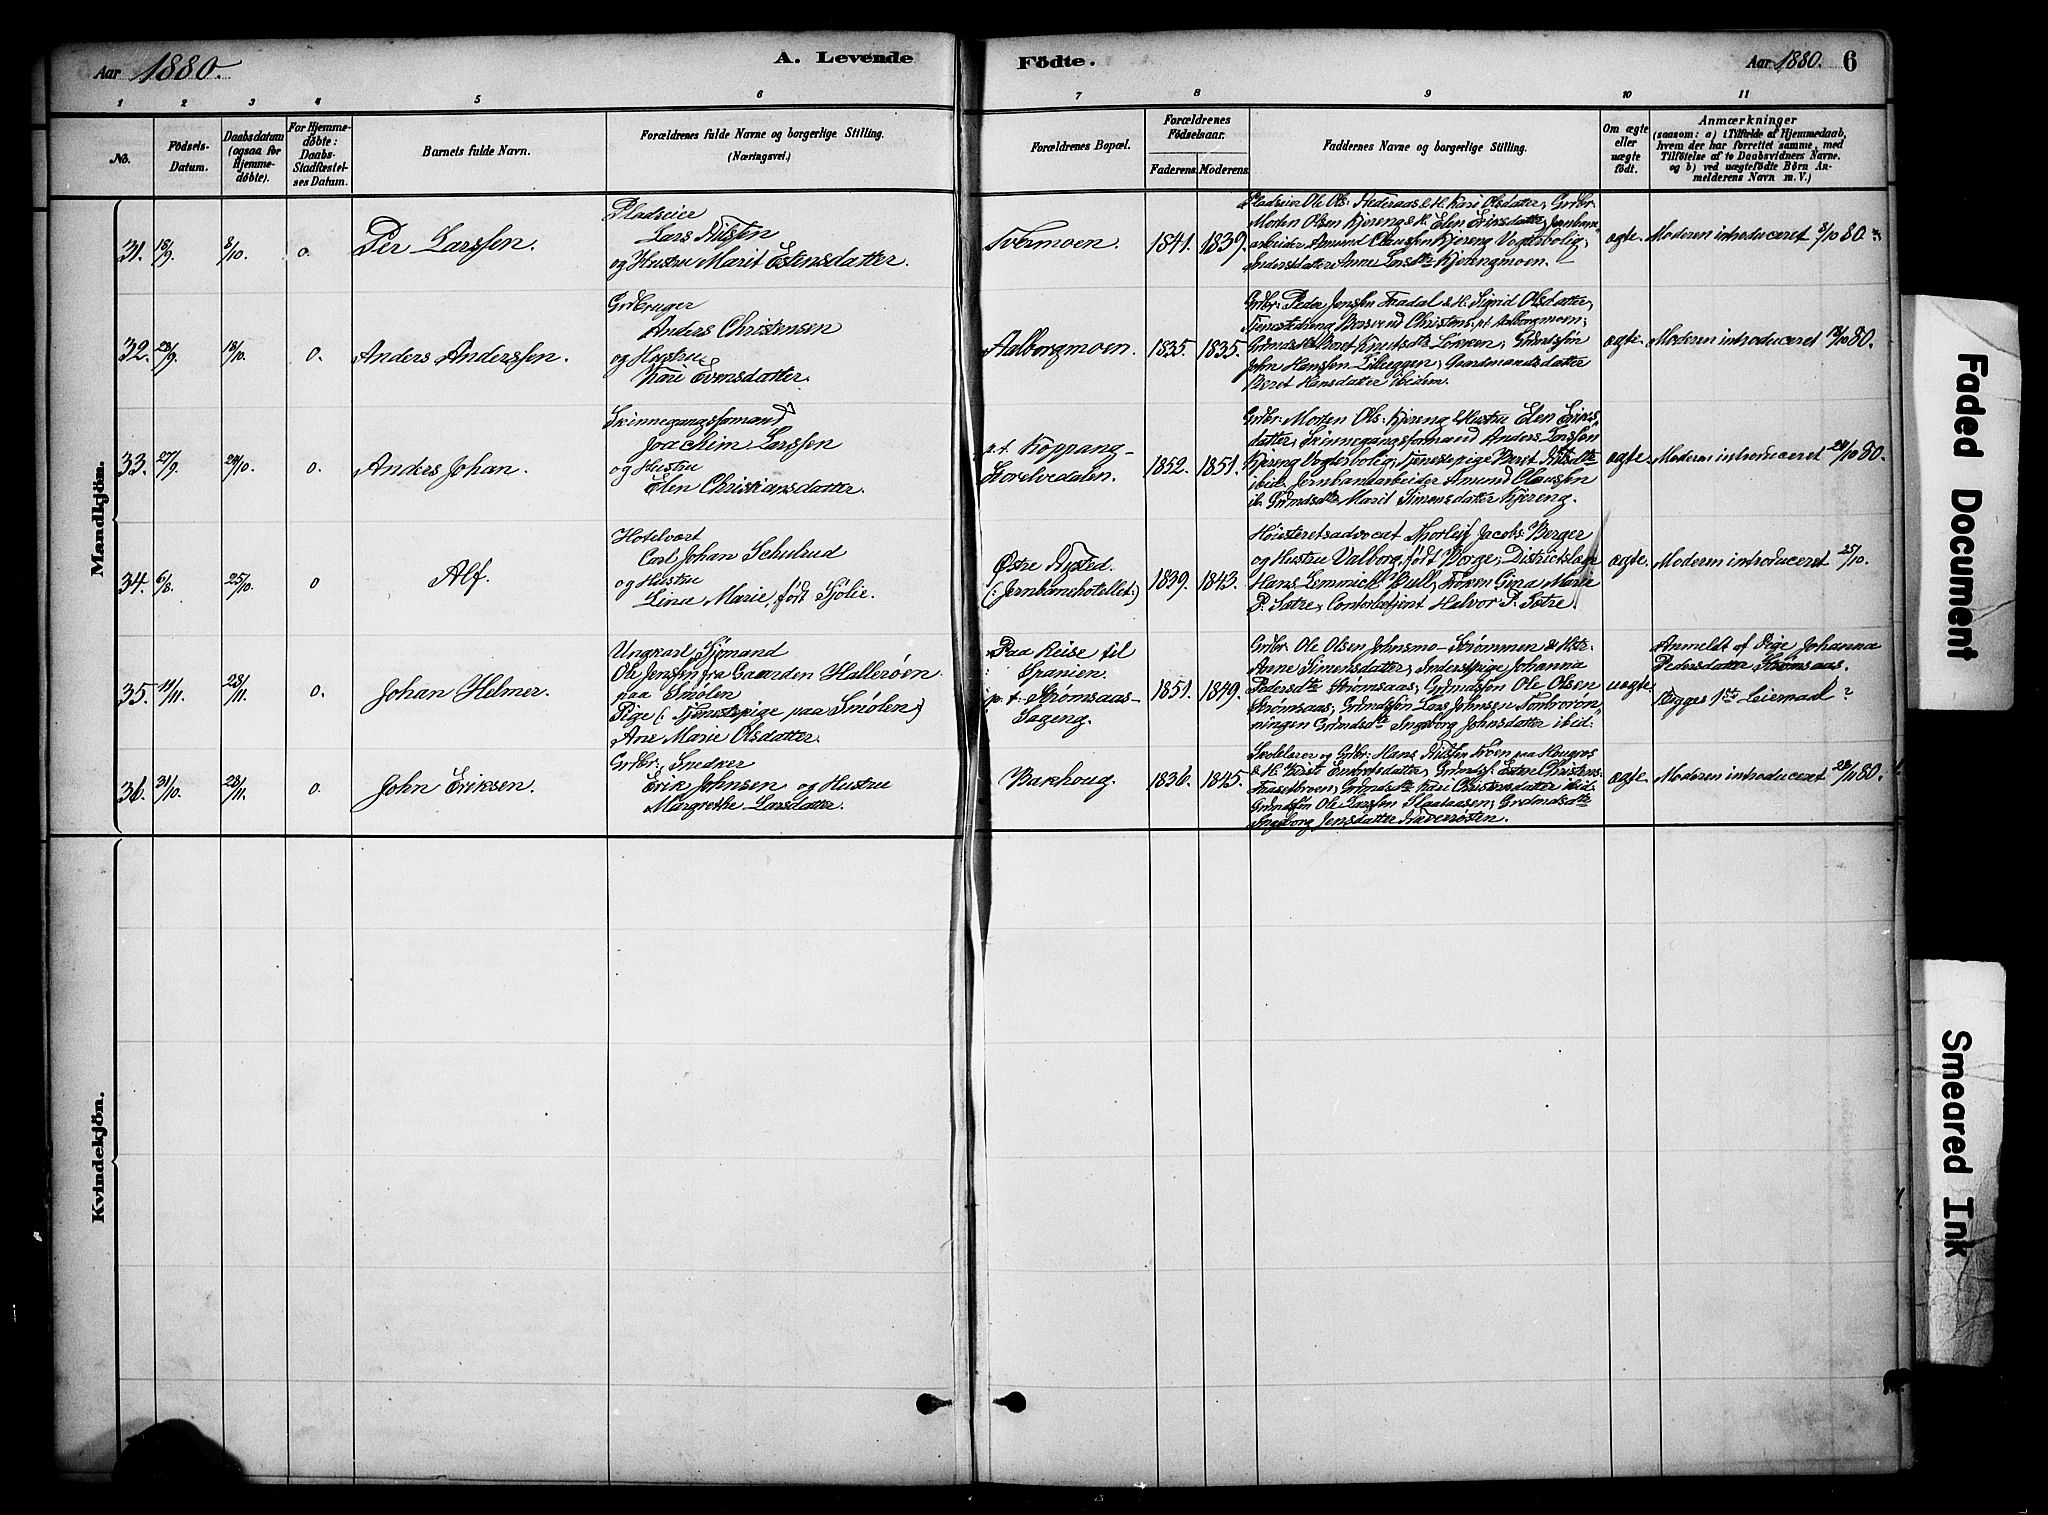 Aar 1880.
A. Levende
Födte.
Aar 1880. 6
1 2 3 4 5 6 7 8 9 10 11
No.
Födsels-
Datum.
Daabsdatum
(ogsaa for
Hjemme-
döbte).
For Hjemme-
döbte:
Daabs-
Stadfæstel-
ses Datum.
Barnets fulde Navn.
Forældrenes fulde Navne og borgerlige Stilling.
(Næringsvei.)
Forældrenes Bopæl.
Forældrenes
Födselsaar.
Faderens. Moderens.
Faddernes Navne og borgerlige Stilling.
Om ægte
eller
uægte
födt.
Anmærkninger
(saasom: a) i Tilfælde af Hjemmedaab,
hvem der har forrettet samme, med
Tilföielse af to Daabsvidners Navne.
og b) ved uægtefödte Börn An-
melderens Navn m. V.)
Mandkjön.
31. 18/9 3/10 o. Per Larssen.
Pladseier
Lars Nilsen
og Hustru Marit Estensdatter.
Tvermoen.
1841. 1839.
Morten Olsen Kjereng & H. Elen Eriksdatter, Jernbane-
arbeider Amund Claussen Kjereng Vogterbolig,
ægte. Moderen introduceret 3/10 80.
32. 23/9 18/10 o. Anders Anderssen.
Grdbruger
Anders Christensen
og Hustru
Kari Evensdatter.
Aalborgmoen.
1835. 1835.
Grdbr: Peder Jensen Faadal & H. Sigrid Olsdatter,
John Hanssen Lilleeggen, Gaardmandsdatter
Beret Hansdatter ibidem.
ægte. Moderen introduceret
33. 27/9 24/10 o. Anders Johan.
Skinnegangsformand
Joachim Larssen
og Hustru
Elen Christiansdatter.
p.t. Koppang-
Storelvedalen.
1852. 1851.
Grdbr: Morten Ols: Kjereng & Hustru Elen Eriks-
datter, Skinnegangsformand Anders Larssen
Kjereng Vogterbolig, Tjenestepige Beret Nilsdtr
ibid. Jernbanearbeider Amund Claussen
ib. Grdmdsdtr Marit Simensdatter Kjereng.
ægte. Moderen introduceret 24/10 80.
34. 6/8 25/10 o Alf.
Hotelvært
Carl Johan Schulrud
og Hustru
Lina Marie, født Sjølie.
Østre Nysted.
(: Jernbanehotellet:)
1839. 1843.
Høiesteretsadvocat Thorleif Jacobs Berger
og Hustru Valborg, født Borge, Districtslæge
Hans Emmerich Bull, Frøken Gina Marie
P. Sætre, Contorbetjent Halvor P. Sætre.
ægte. Moderen introduceret 25/10.
35. 11/11. 28/11. o. Johan Helmer.
Ungkarl Sjømand
Ole Jensen fra Gaarden Hallerøen
paa Smølen
Pige (: Tjenestepige paa Smølen:)
Ane Marie Olsdatter.
Paa Reise til
Spanien.
p. t. Strømsaas-
Sageng.
1851. 1849.
Grdbr Ole Olsen Johnsmo-Strømmen & Hst.
Anne Simensdatter, Inderstpige Johanna
Pedersdtr Strømsaas, Grdmdssøn Ole Olsen
Strømsaas, Grdmdssøn Lars Johnsen Tønbrøron-
ningen Grdmdsdtr Ingeborg Johnsdatter ibid.
uægte
Anmeldt af Pige Johanna
Pedersdatter Strømsaas.
Begges 1ste Leiermaal?
36. 31/10. 28/11. o. John Eriksen.
Grdbr: Snedker
Erik Johnsen og Hustru
Margrethe Larsdatter.
Bakhaug.
1836. 1845.
Skolelærer og Grdbr: Hans Nilsen Troen paa Hougros
Grdmdssøn Ole Larssen
Ingeborg Jensdatter
ægte. Moderen introduceret 28/11 80.
Kvindekjön.
Faded Document
Smeared Ink